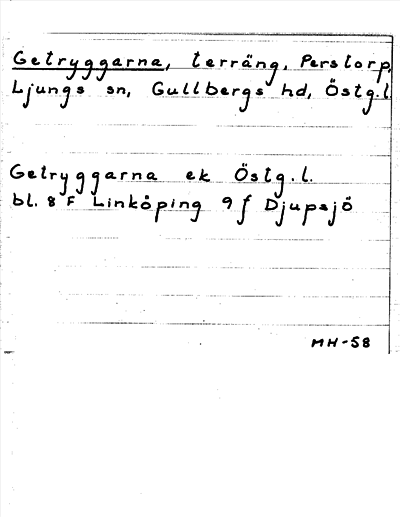 Getryggarna, terräng, Perstorp,
Ljungs sn, Gullbergs hd, Östg.l
Getryggarna ek Östg.l.
bl. 8 F Linköping 9 f Djupsjö
MH-58